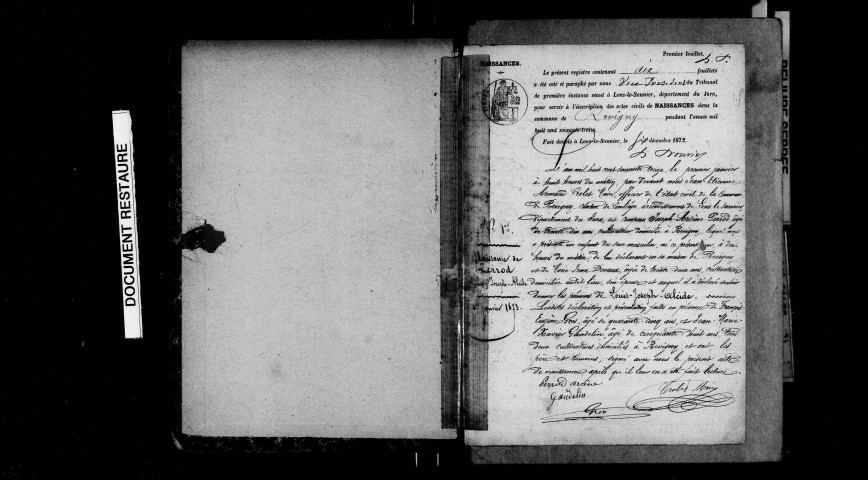 DOCUMENT RESTAURE
Premier feuillet.
NAISSANCES.
Le présent registre contenant dix feuillets
a été coté et paraphé par nous Vice Président du Tribunal
de première instance séant à Lons-le-Saunier, département du Jura,
pour servir à l'inscription des actes civils de NAISSANCES dans la
commune de Revigny pendant l'année mil
huit cent soixante-treize.
Fait double à Lons-le-Saunier, le six décembre 1872.
L'an mil huit cent soixante treize, le premier janvier
à huit heures du matin, par devant nous Jean Etienne
Armand Trolet Maire, officier de l'état civil de la commune
de Revigny, canton de Conliège, arrondissement de Lons le Saunier
département du Jura, est comparu Joseph-Arsène Perrod âgé
de trente six ans, cultivateur domicilié à Revigny, lequel nous
a présenté un enfant du sexe masculin, né ce présent jour, à deux
heures du matin, de lui déclarant en sa maison de Revigny
et de âgée de trente deux ans, cultivatrice
domiciliée audit lieu, son épouse et auquel il a déclaré vouloir
donner les prénoms de Louis-Joseph-Alcide.
Lesdites déclaration et présentation faites en présence de François
Eugène Gros, âgé de quarante-cinq ans, et Jean Marie
Xavier Gandelin âgé de cinquante huit ans, tous
deux cultivateurs domiciliés à Revigny, et ont les
père et témoins, signé avec nous le présent acte
de naissance après qu'il leur en a été fait lecture
N° 1er.
Naissance de
Perrod
Louis Joseph-Alcide
1er janvier 1873.
Perrod arsène
Gandelin
Gros
Trolet Maire